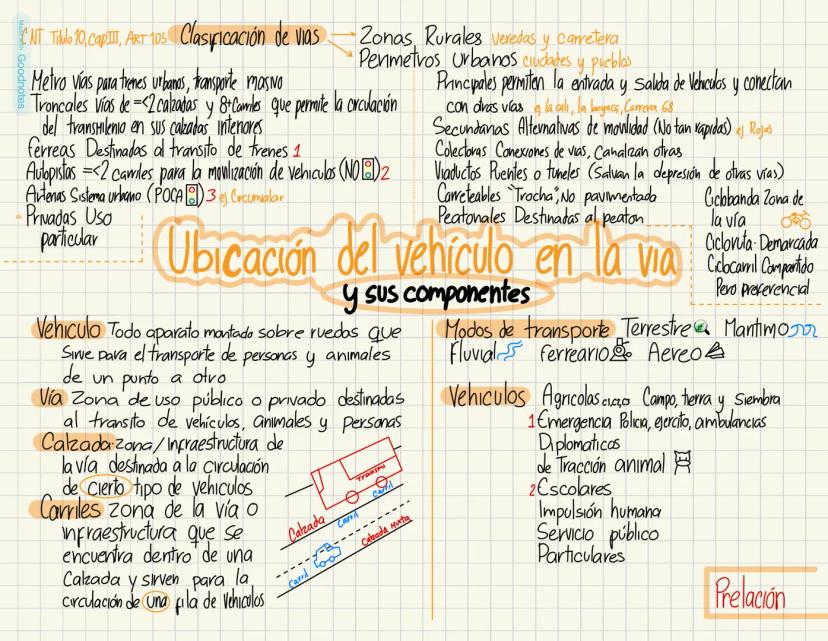 Made with Goodnotes
CNT Titulo 10, cap III, ART 105
Clasificación de vias
Zonas Rurales veredas y carretera
Perimetros Urbanos ciudades y pueblos
Metro vías para trenes urbanos, transporte masivo
Troncales Vías de =<2 calzadas y 8+Carriles que permite la circulación
del transmilenio en sus calzadas interiores
Ferreas Destinadas al transito de trenes 1
Autopistas =<2 carriles para la movilización de vehiculos (NO) 2
Arterias Sistema urbano (POCA) 3 ej Circunvalar
Privadas Uso
particular
Principales permiten la entrada y Salida de Vehiculos y conectan
con otras vías ej la cali, la boyaca, Carrera 68
Secundarias Alternativas de movilidad (No tan rapidas) ej Rojas
Colectoras Conexiones de vias, Canalizan otras
Viaductos Puentes o tuneles (Salvan la depresión de otras vías)
Carreteables "Trocha", No pavimentada
Peatonales Destinadas al peaton
Ciclobanda Zona de
la vía
Cicloruta: Demarcada
Ciclocarril Compartido
Pero preferencial
Ubicación del vehículo en la via
y sus componentes
Vehiculo Todo aparato montado sobre ruedas que
Sirve para el transporte de personas y animales
de un punto a otro
Vía Zona de uso público o privado destinadas
al transito de vehículos, animales y personas
Calzada: zona/Infraestructura de
la vía destinada a la circulación
de cierto tipo de vehiculos
Carriles zona de la vía o
infraestructura que se
encuentra dentro de una
Calzada y sirven para la
circulación de una fila de Vehiculos
Transmi
Carril
Calzada
Carril
Calzada Mixta
Carril
Modos de transporte Terrestre Maritimo
Fluvial Ferreario Aereo
Vehiculos Agricolas Campo, tierra y Siembra
1 Emergencia Policia, ejercito, ambulancias
Diplomaticos
de Tracción animal
2 Escolares
Impulsión humana
Servicio público
Particulares
Prelación